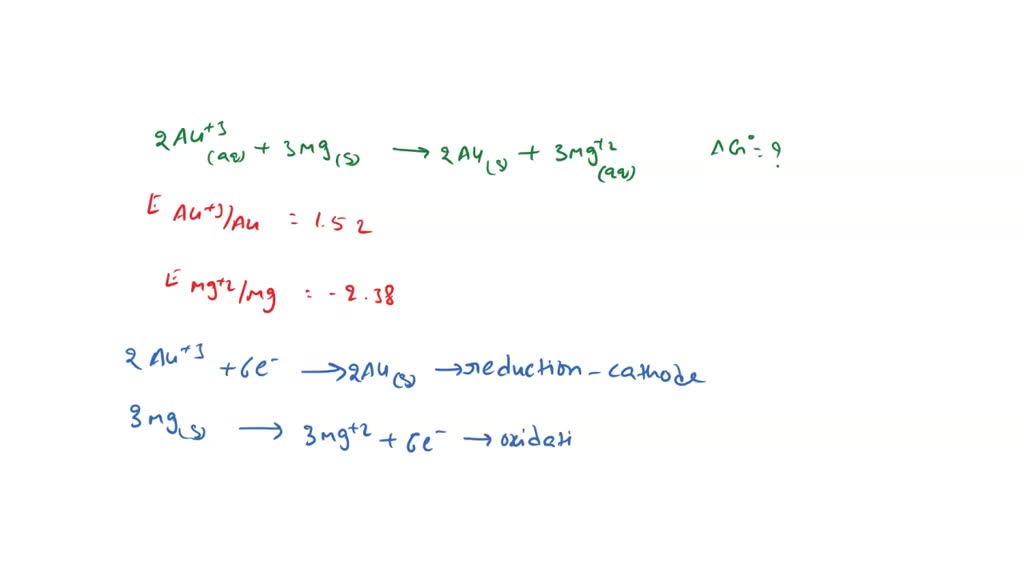 2Au+3(aq) + 3Mg(s) → 2Au(s) + 3Mg+2(aq) ΔG° = ?
E Au+3/Au = 1.52
E Mg+2/Mg = -2.38
2Au+3 + 6e- → 2Au(s) → reduction - cathode
3Mg(s) → 3Mg+2 + 6e- → oxidati